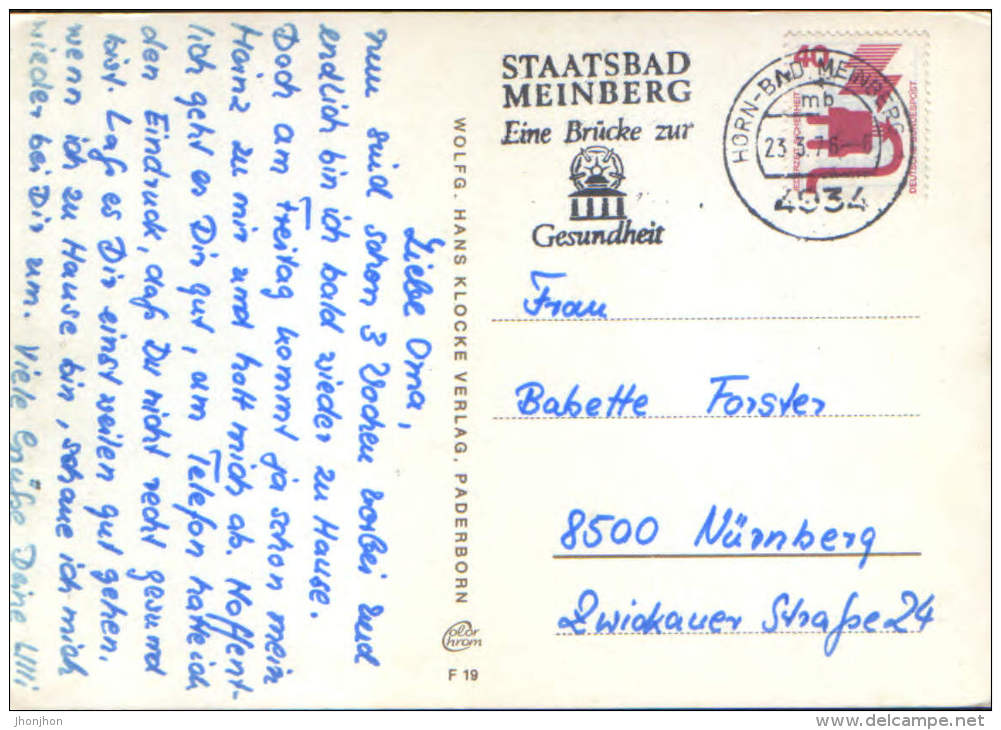 Liebe Oma,
nun sind schon 3 Wochen vorbei und
endlich bin ich bald wieder zu Hause.
Doch am Freitag kommt ja schon mein
Heinz zu mir und holt mich ab. Hoffent-
lich geht es Dir gut, am Telefon hatte ich
den Eindruck, daß Du nicht recht gesund
bist. Laß es Dir einstweilen gut gehen,
wenn ich zu Hause bin, schaue ich mich
wieder bei Dir um. Viele Grüße Deine Lilli
WOLFG. HANS KLOCKE VERLAG, PADERBORN
Color
chrom
F 19
STAATSBAD
MEINBERG
Eine Brücke zur
Gesundheit
40
JEDERZEIT SICHERHEIT
DEUTSCHE BUNDESPOST
HORN-BAD MEINBERG
mb
23.3.7
4934
Frau
Babette Forster
8500 Nürnberg
Zwickauer Straße 24
jhonjhon
delcampe.net